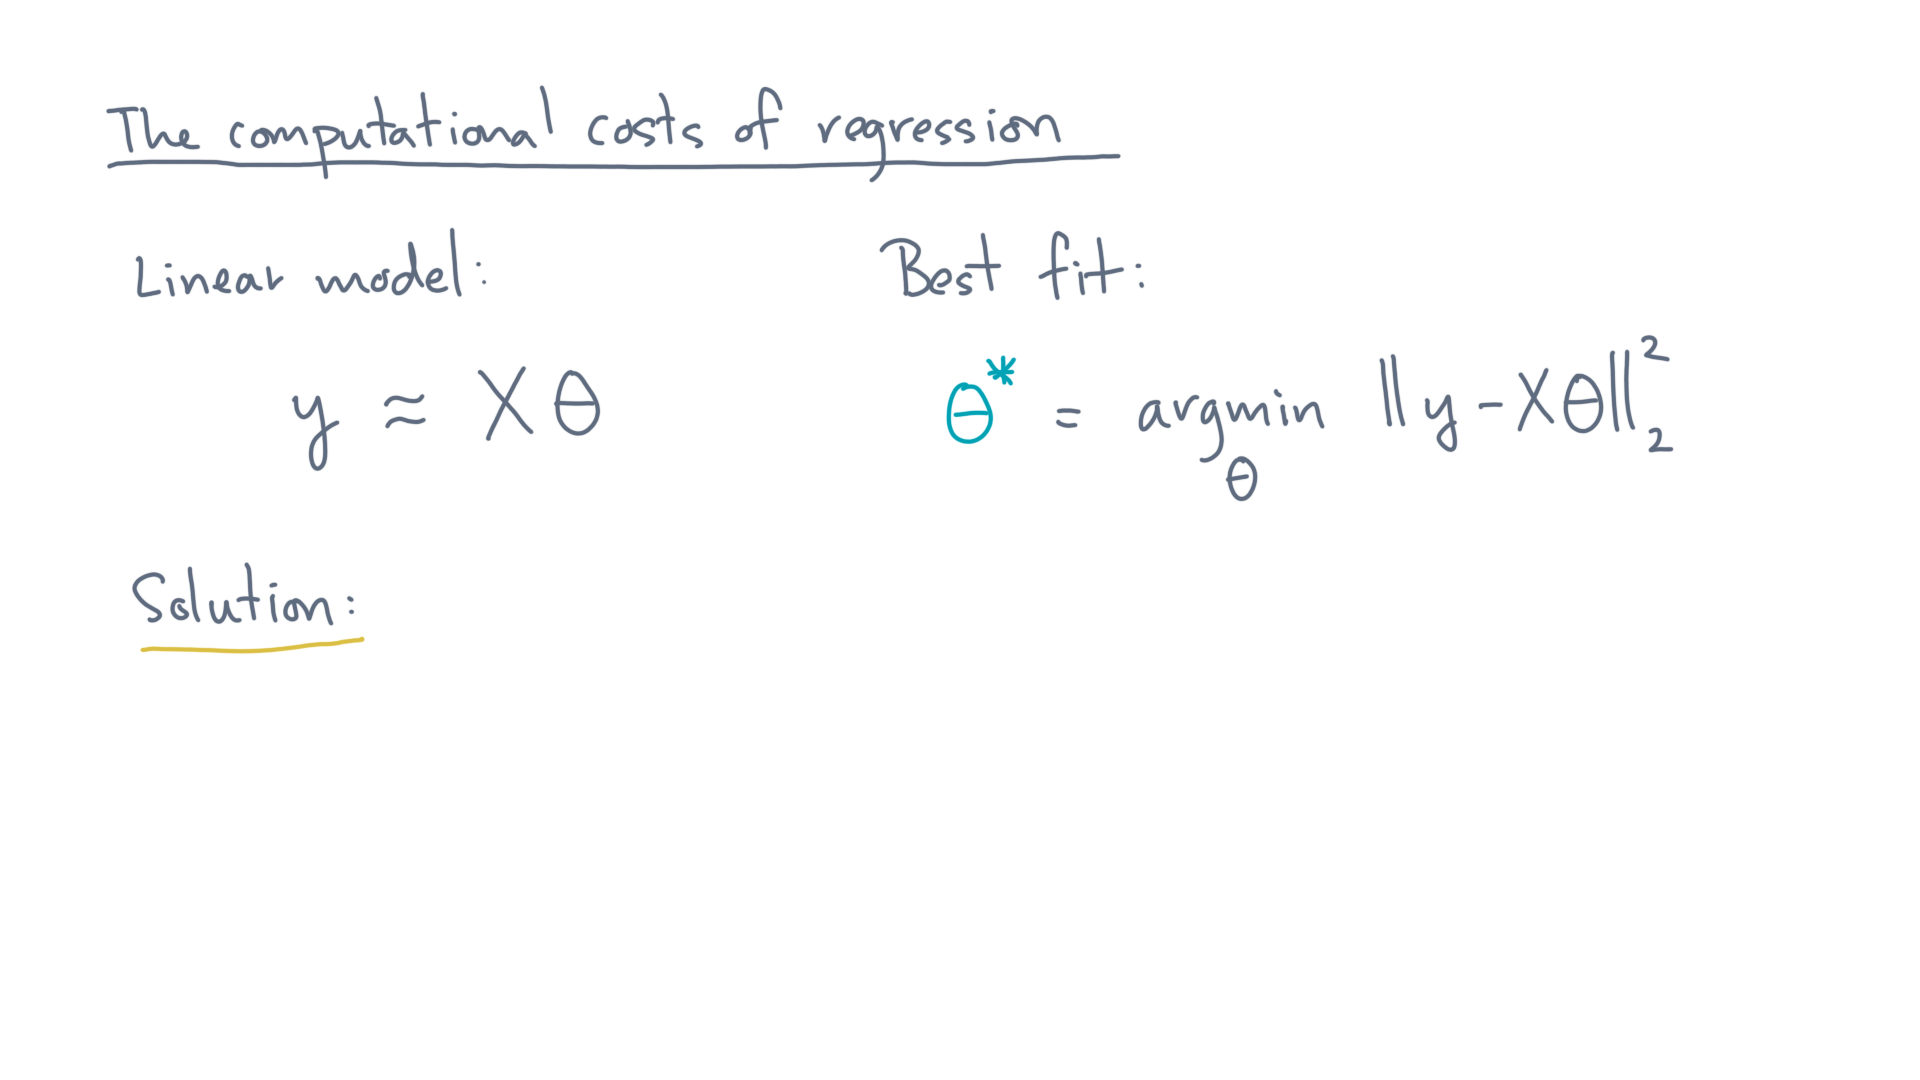 The computational costs of regression
Linear model:
y ≈ Xθ
Best fit:
θ* = argmin ‖y - Xθ‖²₂
θ
Solution: